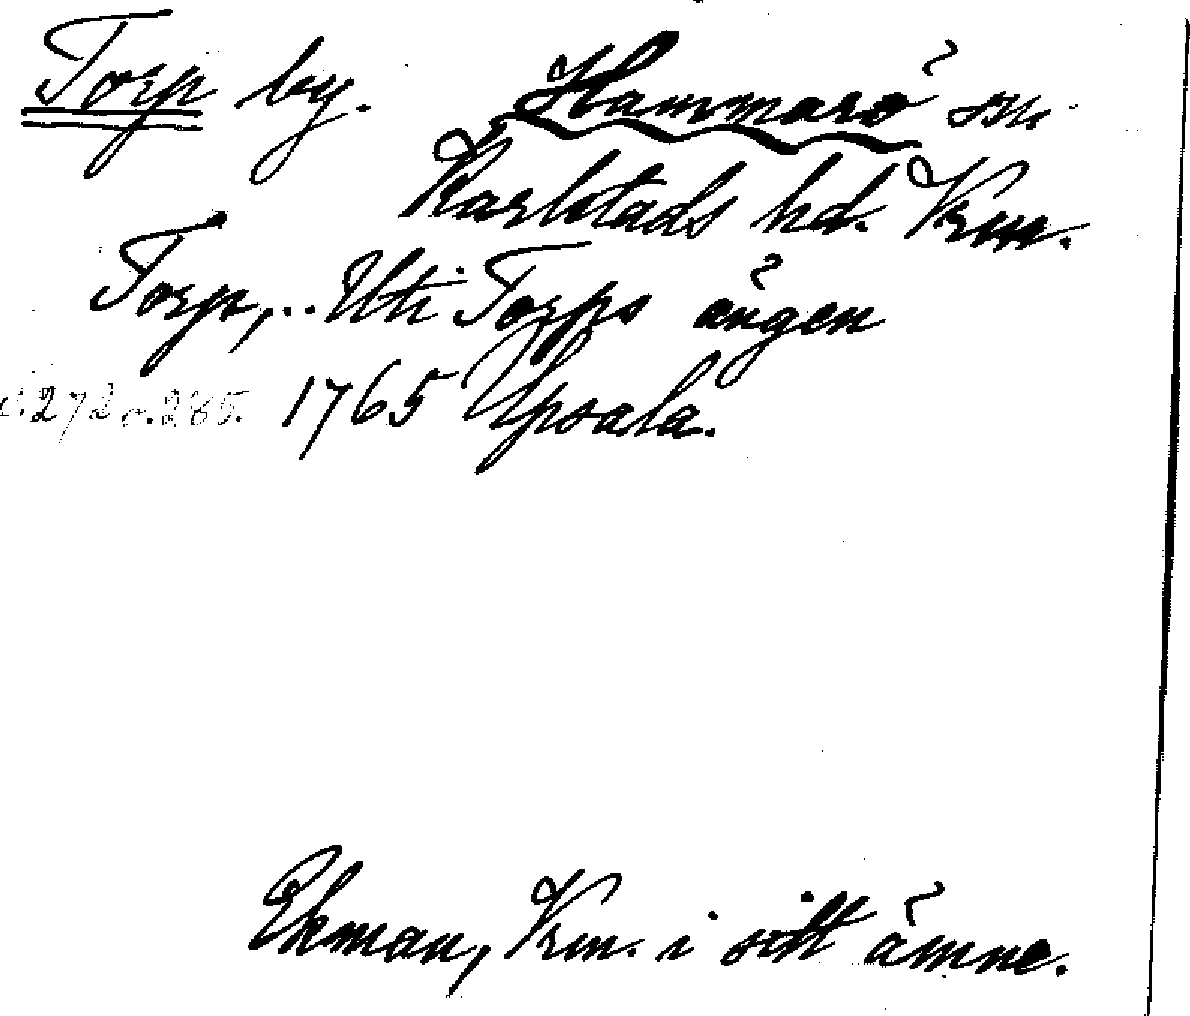 Torp by. Hammarö sn.
Karlstads hd. Vrm.
Torp,.. Uti Torps ängen
s. 272 o. 285. 1765 Upsala.
Ekman, Vrm. i sitt ämne.